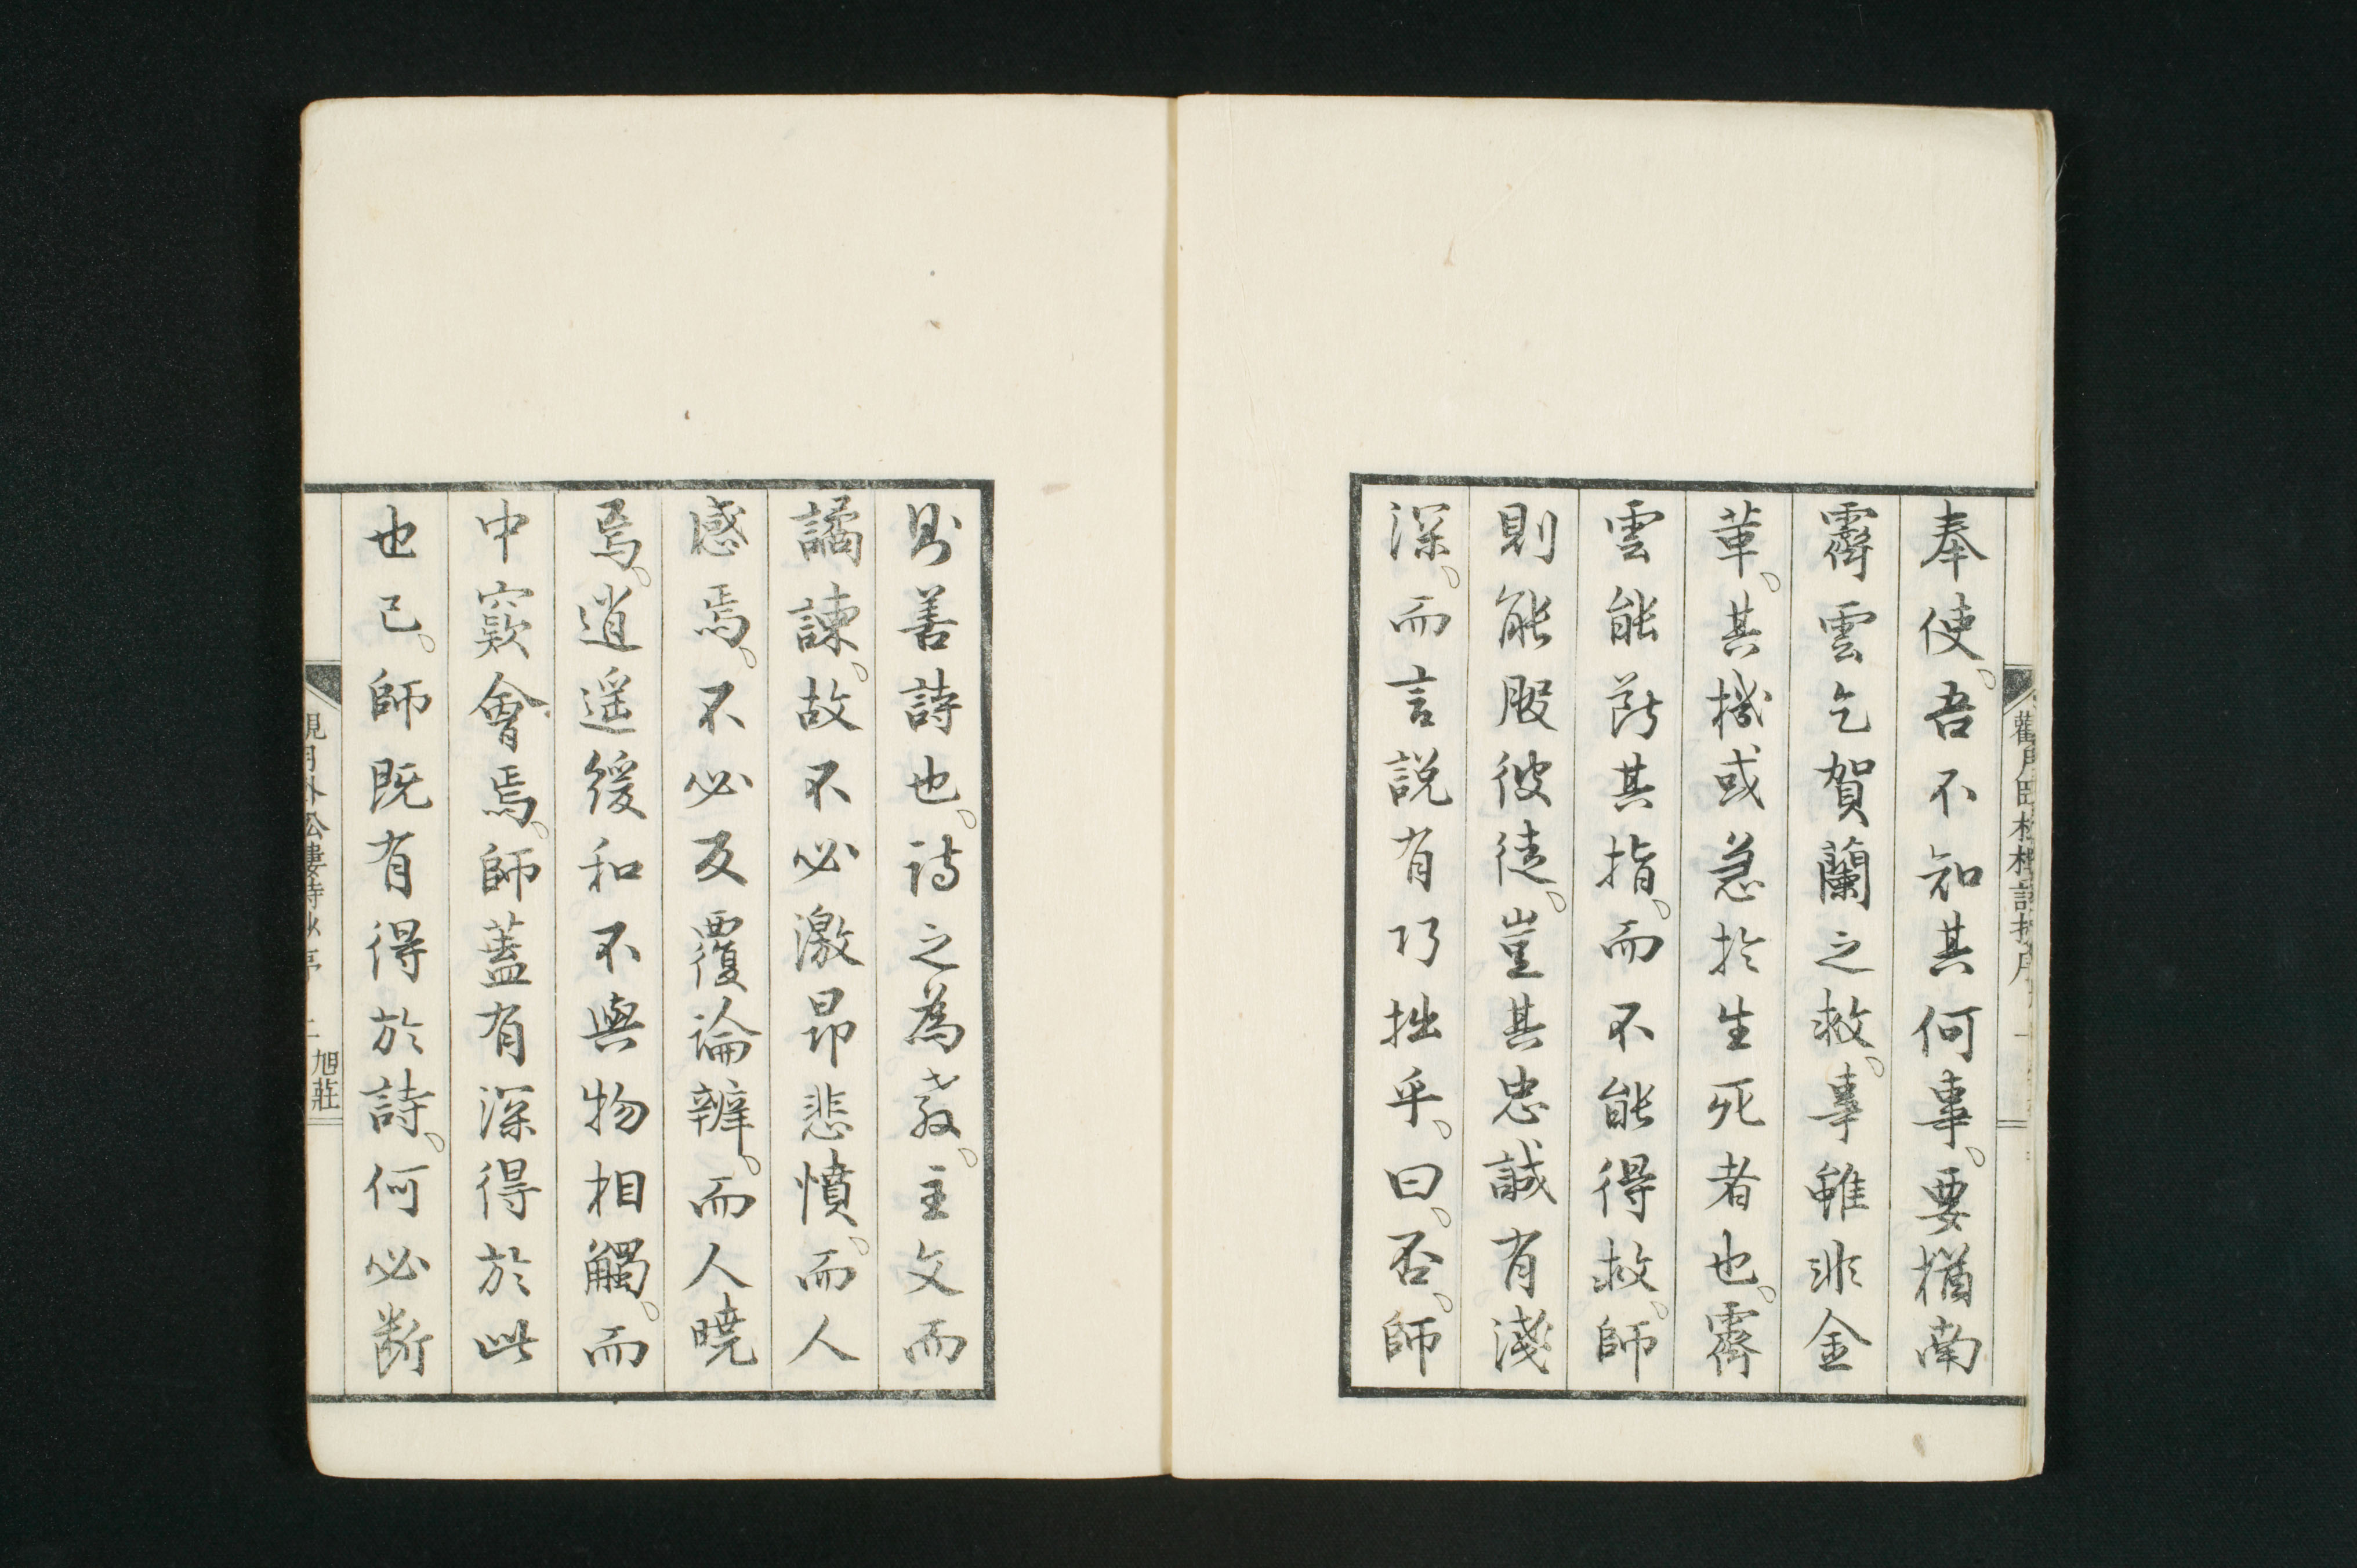 奉使。吾不知其何事。要猶南
霽雲乞賀蘭之救。事雖非金
革。其機或急於生死者也。霽
雲能斷其指。而不能得救。師
則能服彼徒。豈其忠誠有淺
深。而言說有巧拙乎。曰。否。師
則善詩也。詩之為教。主文而
譎諫。故不必激昂悲憤。而人
感焉。不必反覆論辨。而人曉
焉。逍遥緩和不與物相觸。而
中窾會焉。師蓋有深得於此
也已。師既有得於詩。何必斷
旭莊